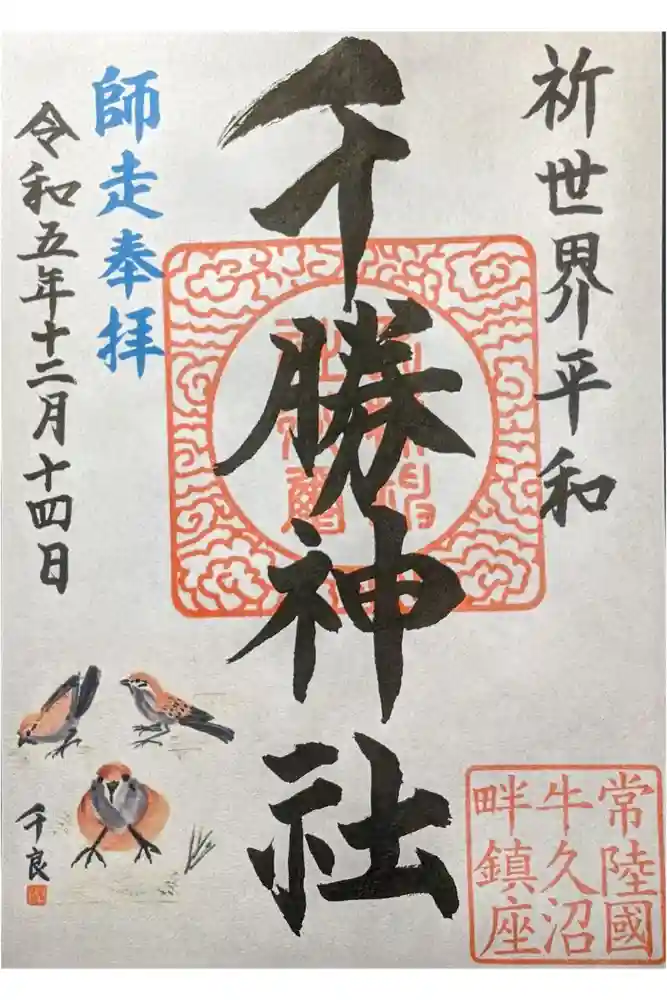 祈世界平和
千勝神社
師走奉拝
令和五年十二月十四日
千良
常陸國
牛久沼
畔鎮座